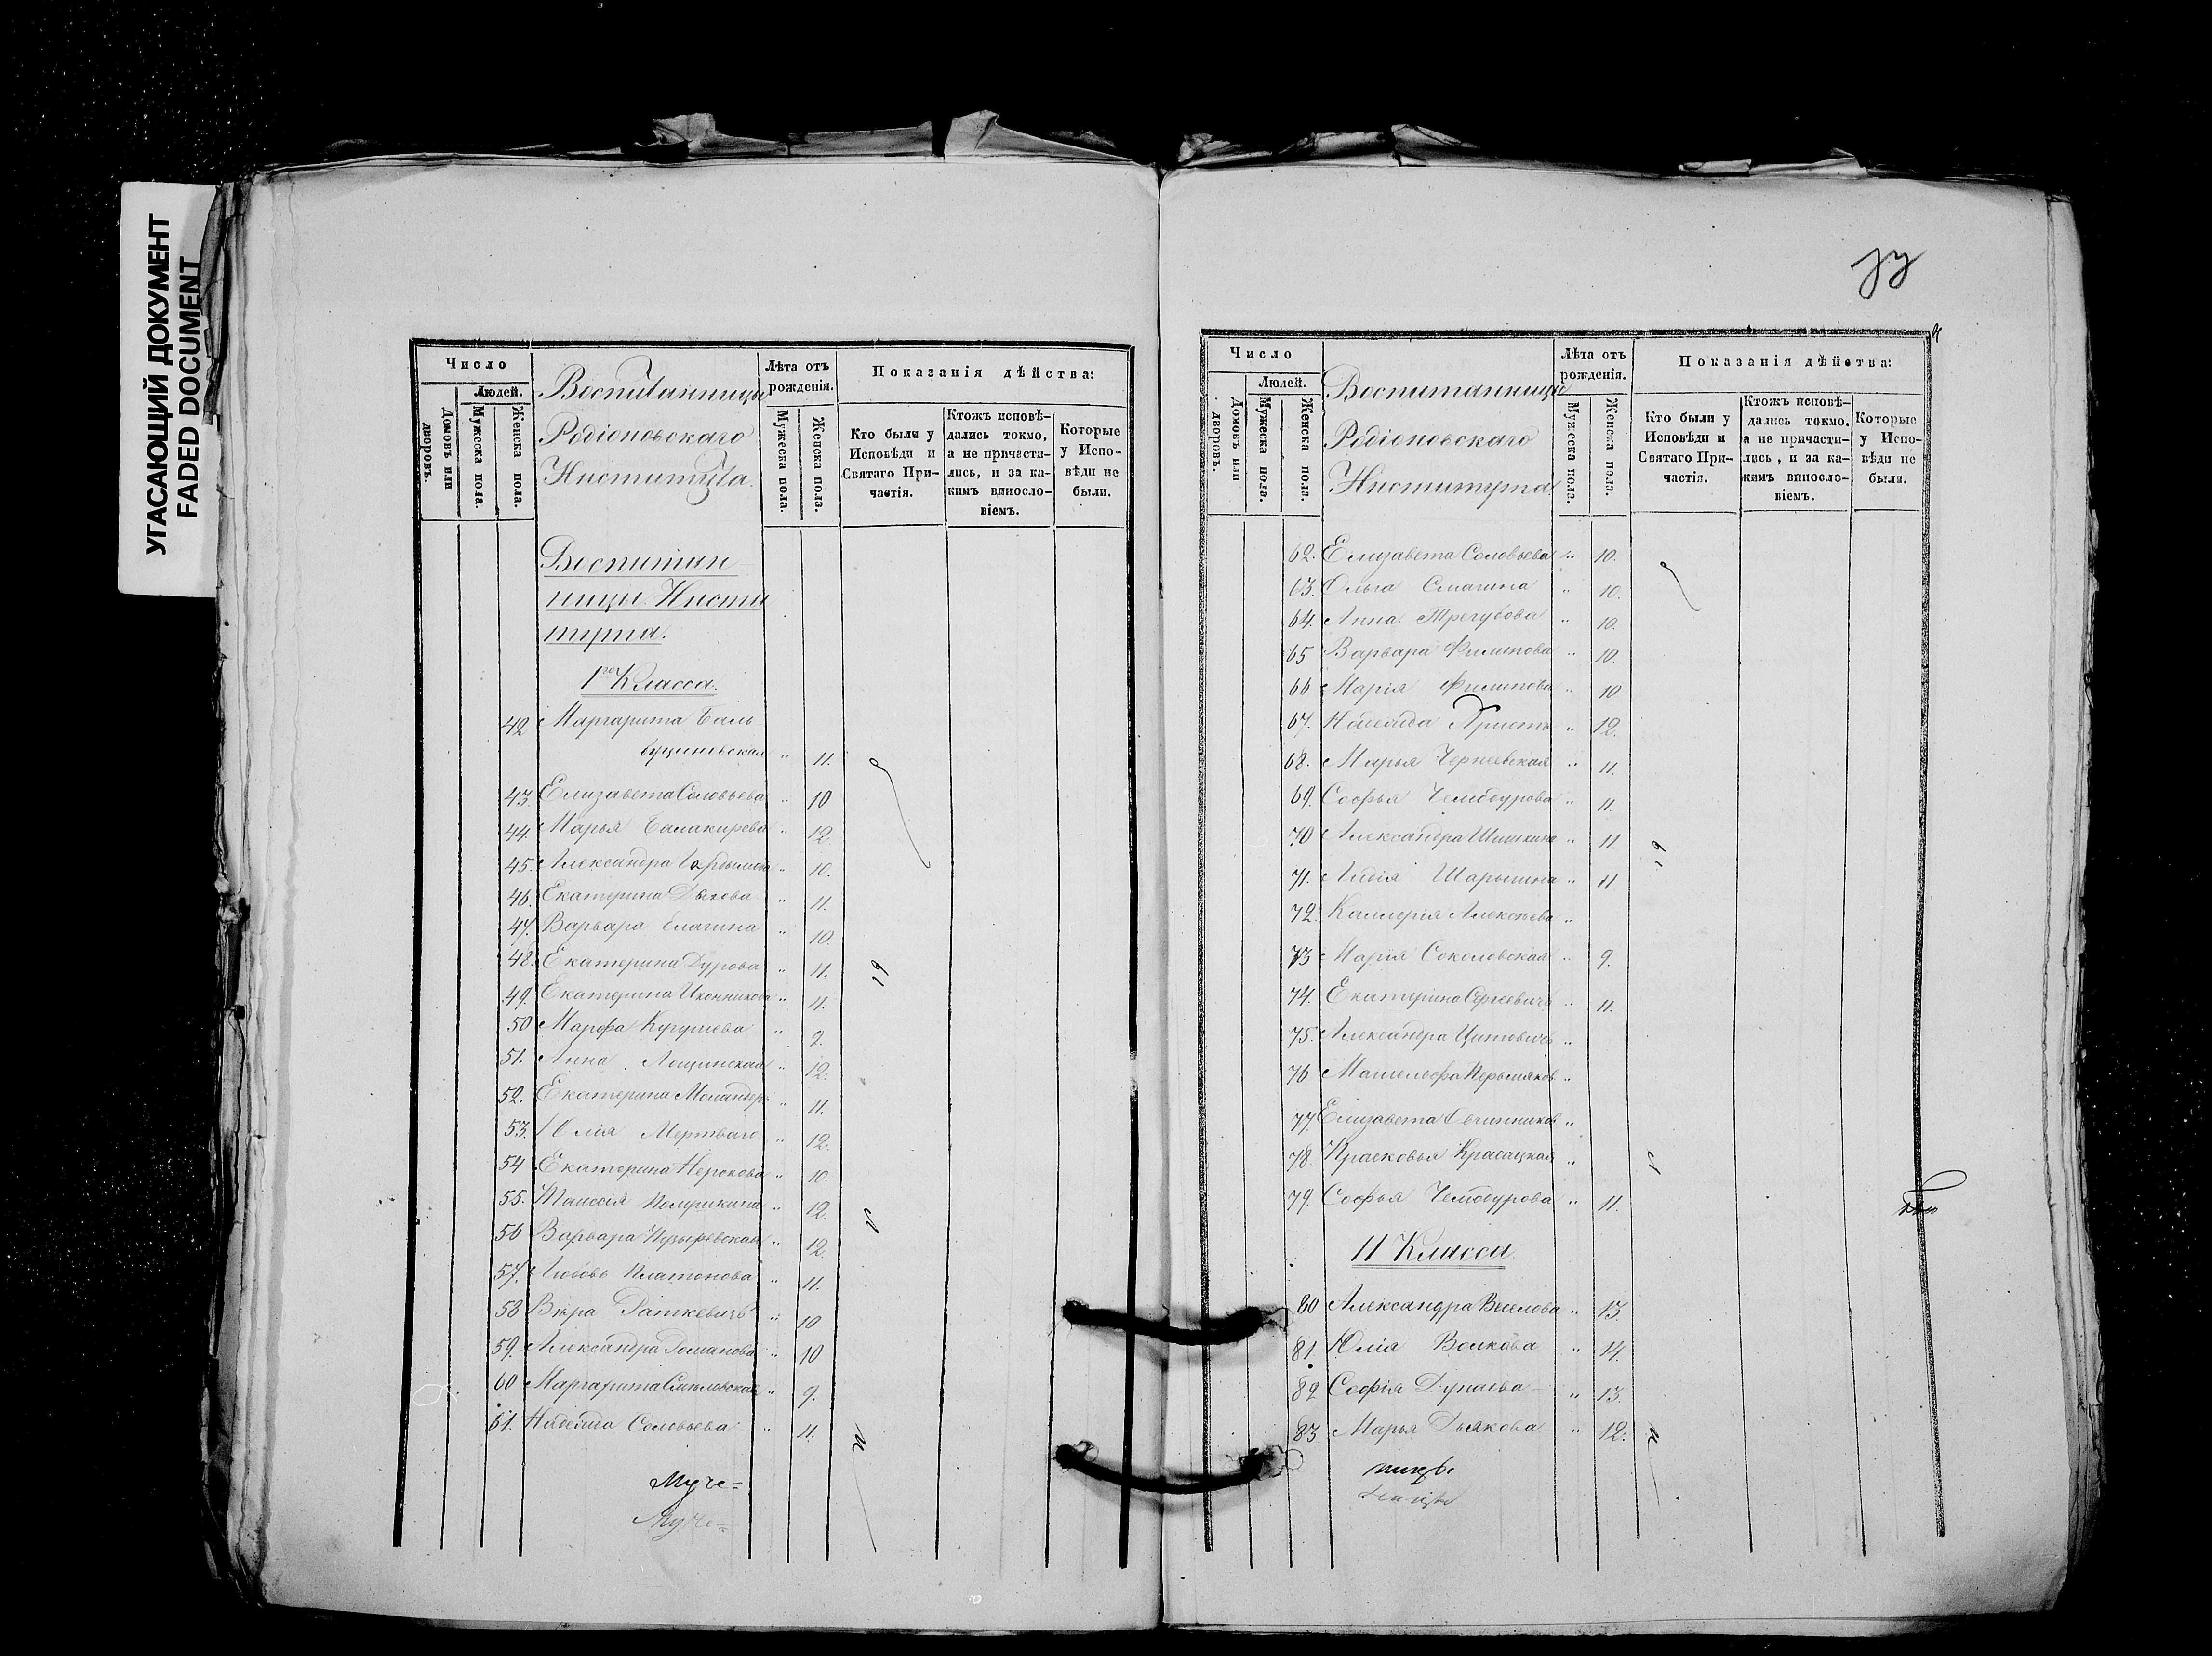 УГАСАЮЩИЙ ДОКУМЕНТ
FADED DOCUMENT
Число
Людей.
Домовъ или дворовъ.
Мужеска пола.
Женска пола.
Воспитанницы
Родіоновскаго
Института.
Лѣта отъ рожденія.
Мужеска пола.
Женска пола.
Показанія дѣйства:
Кто были у Исповѣди и Святаго Причастія.
Ктожъ исповѣдались токмо, а не причастились, и за какимъ винословіемъ.
Которые у Исповѣди не были.
Воспитан
ницы Инсти
тута.
1го Класса.
42 Маргарита Баль
буциновская " 11.
43. Елизавета Соловьева " 10
44. Марья Балакирева " 12.
45. Александра " 10.
46. Екатерина " 11.
47. Варвара Елагина " 10.
48. Екатерина Дурова " 11.
49. Екатерина Иконникова " 11.
50 Марфа Кугушева " 9.
51. Анна Лещинская " 12.
52. Екатерина Моландеръ " 11.
53. Юлія Мертваго " 12.
54 Екатерина " 10.
55. Таиссія " 12.
56 Варвара Пузыревская " 12.
57. Любовь Платонова " 11.
58 Вѣра Раткевичъ " 10
59. Александра Романова " 10
60 Маргарита " 9.
61. Надежда Соловьева " 11.
Муче=
Муче=
Число
Людей.
Домовъ или дворовъ.
Мужеска пола.
Женска пола.
Воспитанницы
Родіоновскаго
Института.
Лѣта отъ рожденія.
Мужеска пола.
Женска пола.
Показанія дѣйства:
Кто были у Исповѣди и Святаго Причастія.
Ктожъ исповѣдались токмо, а не причастились, и за какимъ винословіемъ.
Которые у Исповѣди не были.
62. Елизавета Соловьева " 10.
63. Ольга Смагина " 10.
64. Анна Трегубова " 10.
65 Варвара Филипова " 10.
66 Марія Филипова " 10
67. Надежда " 12.
68. Марья Черневская " 11.
69. Софья Чембурова " 11.
70 Александра Шишкина " 11.
71. Лидія Шарыгина " 11
72. Каллерія Алексѣева "
73 Марія Соколовская " 9.
74. Екатерина Сергеевичъ " 11.
75. Александра Цитовичъ "
76 "
77 Елизавета Овчинников "
78 Прасковья Красацкая "
79. Софья Чембурова " 11.
II Класса.
80 Александра Веселова " 13.
81. Юлія Волкова " 14.
82 Софія Дунаева " 13.
83. Марья Дьякова " 12.